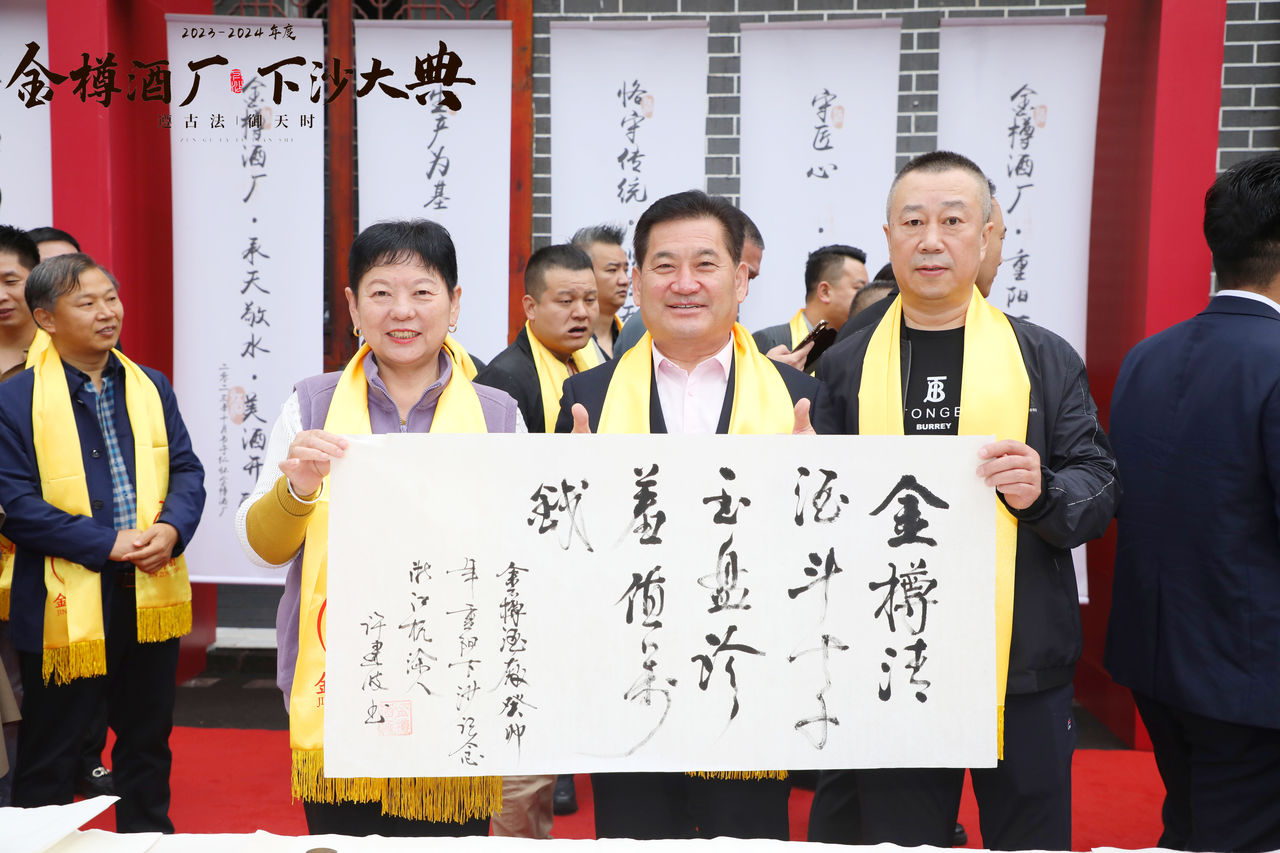 2023-2024年度
金樽酒厂·下沙大典
遵古法|御天时
金樽酒厂·承天敬水·美酒开
生产为基
恪守传统·
守匠心·
金樽酒厂·重阳
TB
TONGE
BURREY
金樽清
酒斗十千
玉盘珍
羞值万
钱
金樽酒厂癸卯
年重阳下沙记念
浙江杭
许建波书